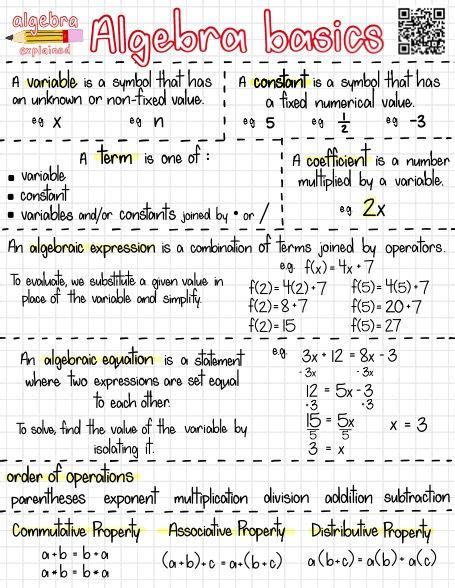 algebra
explained
Algebra basics
A variable is a symbol that has
an unknown or non-fixed value.
eg x eg n
A constant is a symbol that has
a fixed numerical value.
eg 5 eg 1/2 eg -3
A term is one of :
▪ variable
▪ constant
▪ variables and/or constants joined by • or /
A coefficient is a number
multiplied by a variable.
eg 2x
An algebraic expression is a combination of terms joined by operators.
To evaluate, we substitute a given value in
place of the variable and simplify.
eg f(x) = 4x + 7
f(2) = 4(2) + 7 f(5) = 4(5) + 7
f(2) = 8 + 7 f(5) = 20 + 7
f(2) = 15 f(5) = 27
An algebraic equation is a statement
where two expressions are set equal
to each other.
To solve, find the value of the variable by
isolating it.
eg 3x + 12 = 8x - 3
-3x -3x
12 = 5x - 3
+3 +3
15/5 = 5x/5 x = 3
3 = x
order of operations
parentheses exponent multiplication division addition subtraction
Commutative Property
a + b = b + a
a * b = b * a
Associative Property
(a + b) + c = a + (b + c)
Distributive Property
a (b + c) = a(b) + a(c)